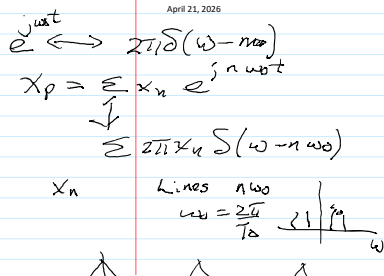 April 21, 2026
e^{jω₀t} ⟷ 2πδ(ω-nω₀)
x_p = Σ x_n e^{jnω₀t}
Σ 2πx_n δ(ω-nω₀)
x_n Lines nω₀
ω₀ = 2π/T₀
ω